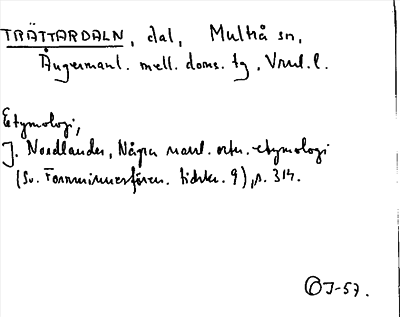 TRÄTTARDALN, dal, Multrå sn,
Ångermanl. mell. doms. tg, Vnrl. l.
Etymologi,
J. Nordlander, Några norrl. ortn. etymologi
(Sv. Fornminnesfören. tidskr. 9), s. 314.
J-57.